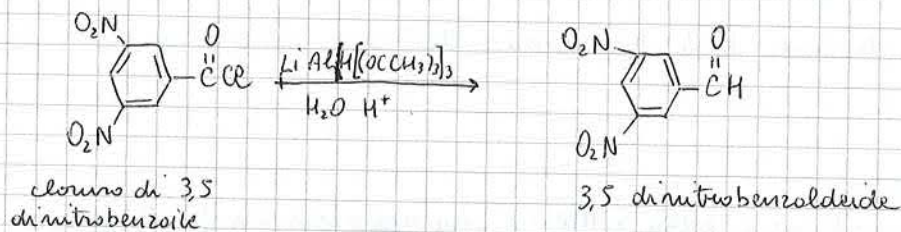 O₂N O CCl O₂N
LiAlH[(OCCH₃)₃]₃
H₂O H⁺
O₂N O CH O₂N
cloruro di 3,5
dinitrobenzoile
3,5 dinitrobenzaldeide